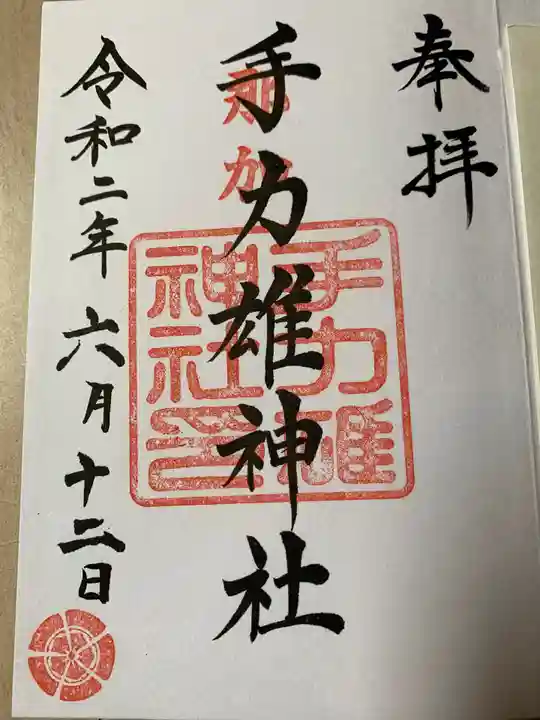 奉拝
那加
手力雄神社
手力雄神社印
令和二年六月十二日